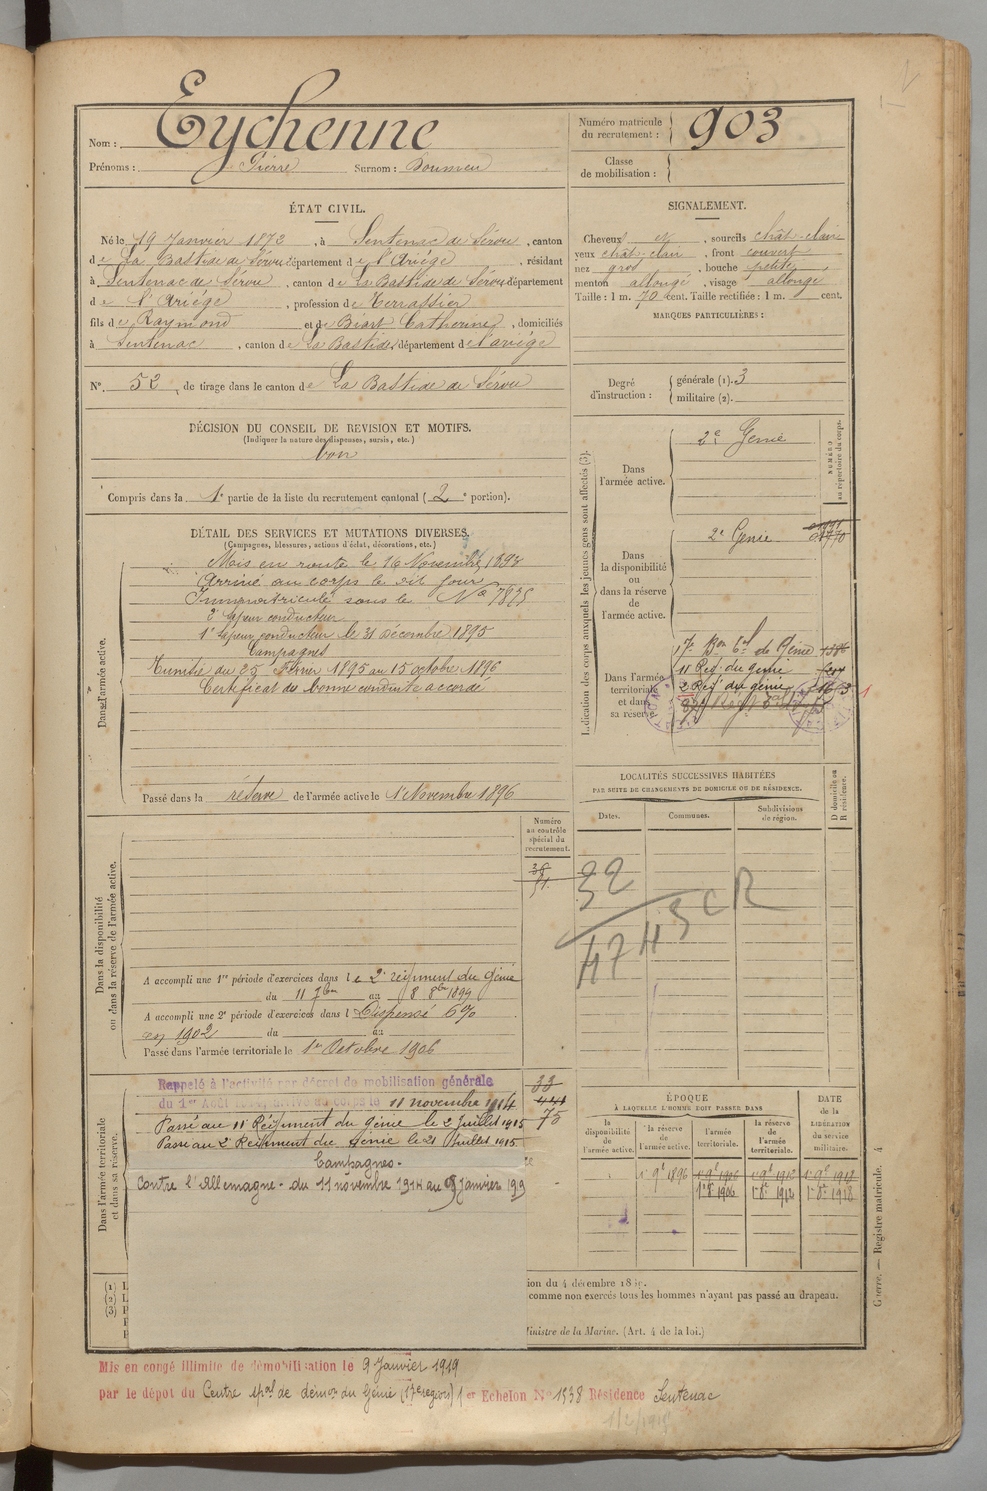 Nom : Eychenne
Prénoms : Pierre Surnom : Boumeu
Numéro matricule du recrutement : 903
Classe de mobilisation :
ÉTAT CIVIL.
Né le 19 Janvier 1873, à Sentenac de Sérou, canton
de La Bastide de Sérou département de l'Ariége, résidant
à Sentenac de Sérou, canton de La Bastide de Sérou département
de l'Ariége, profession de Terrassier
fils de Raymond et de Biart Catherine, domiciliés
à Sentenac, canton de La Bastide, département de l'ariége
N° 52 de tirage dans le canton de La Bastide de Sérou
SIGNALEMENT.
Cheveux et, sourcils chât-clairs
yeux chât-clair, front couvert
nez gros, bouche petite
menton allongé, visage allongé
Taille : 1 m. 70 cent. Taille rectifiée : 1 m. cent.
MARQUES PARTICULIÈRES :
Degré d'instruction : générale (1). 3
militaire (2).
DÉCISION DU CONSEIL DE REVISION ET MOTIFS.
(Indiquer la nature des dispenses, sursis, etc.)
bon
Compris dans la 1e partie de la liste du recrutement cantonal (2e portion).
DÉTAIL DES SERVICES ET MUTATIONS DIVERSES.
(Campagnes, blessures, actions d'éclat, décorations, etc.)
Dans l'armée active.
Mis en route le 16 Novembre 1893
Arrivé au corps le dit jour
Immatriculé sous le No 7825
2e Sapeur conducteur
1e Sapeur conducteur le 31 décembre 1895
Campagnes
Tunisie du 25 Février 1895 au 15 octobre 1896
Certificat de bonne conduite accordé
Passé dans la réserve de l'armée active le 1er Novembre 1896
Indication des corps auxquels les jeunes gens sont affectés (3).
NUMÉRO au répertoire du corps.
Dans l'armée active.
2e Génie
Dans la disponibilité ou dans la réserve de l'armée active.
2e Génie
Dans l'armée territoriale et dans sa réserve
17e Bon tal de Génie
11 Reg. du génie
2 Reg. du génie
LOCALITÉS SUCCESSIVES HABITÉES
PAR SUITE DE CHANGEMENTS DE DOMICILE OU DE RÉSIDENCE.
Dates. Communes. Subdivisions de région. D domicile ou R résidence.
Numéro au contrôle spécial du recrutement.
32
4743 CR
Dans la disponibilité ou dans la réserve de l'armée active.
A accompli une 1re période d'exercices dans le 2e régiment du Génie
du 11 7bre au 8 8bre 1899
A accompli une 2e période d'exercices dans l Dispensé 6%
en 1902 du au
Passé dans l'armée territoriale le 1er Octobre 1906
Dans l'armée territoriale et dans sa réserve.
Rappelé à l'activité par décret de mobilisation générale
du 1er Août arrivé au corps le 11 novembre 1914
Passé au 11e Régiment du Génie le 2 Juillet 1915
Passé au 2e Régiment du Génie le 21 Juillet 1915
Campagnes.
Contre l'Allemagne. du 11 novembre 1914 au 8 Janvier 1919
33
441
75
ÉPOQUE
À LAQUELLE L'HOMME DOIT PASSER DANS
la disponibilité de l'armée active.
la réserve de l'armée active.
l'armée territoriale.
la réserve de l'armée territoriale.
DATE de la LIBÉRATION du service militaire.
1er 9e 1896 1er 9e 1906 1er 9e 1912 1er 9e 1918
1er 8e 1906 1er 8e 1912 1er 8e 1918
(1) L
(2) L
(3) P
ion du 4 décembre
comme non exercés tous les hommes n'ayant pas passé au drapeau.
Ministre de la Marine. (Art. 4 de la loi.)
Guerre. — Registre matricule. 4
Mis en congé illimité de démobilisation le 9 Janvier 1919
par le dépot du Centre spal de démon du Génie (17e region) 1er Echelon No 1938 Résidence Sentenac